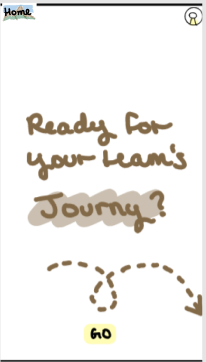 Home
Ready for
your team's
Journy?
GO